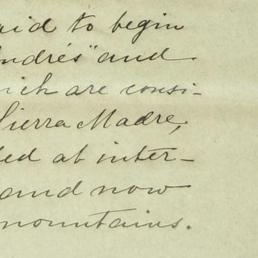 said to begin
Andrés" and
which are consi-
Sierra Madre,
ed at inter-
and now
mountains.